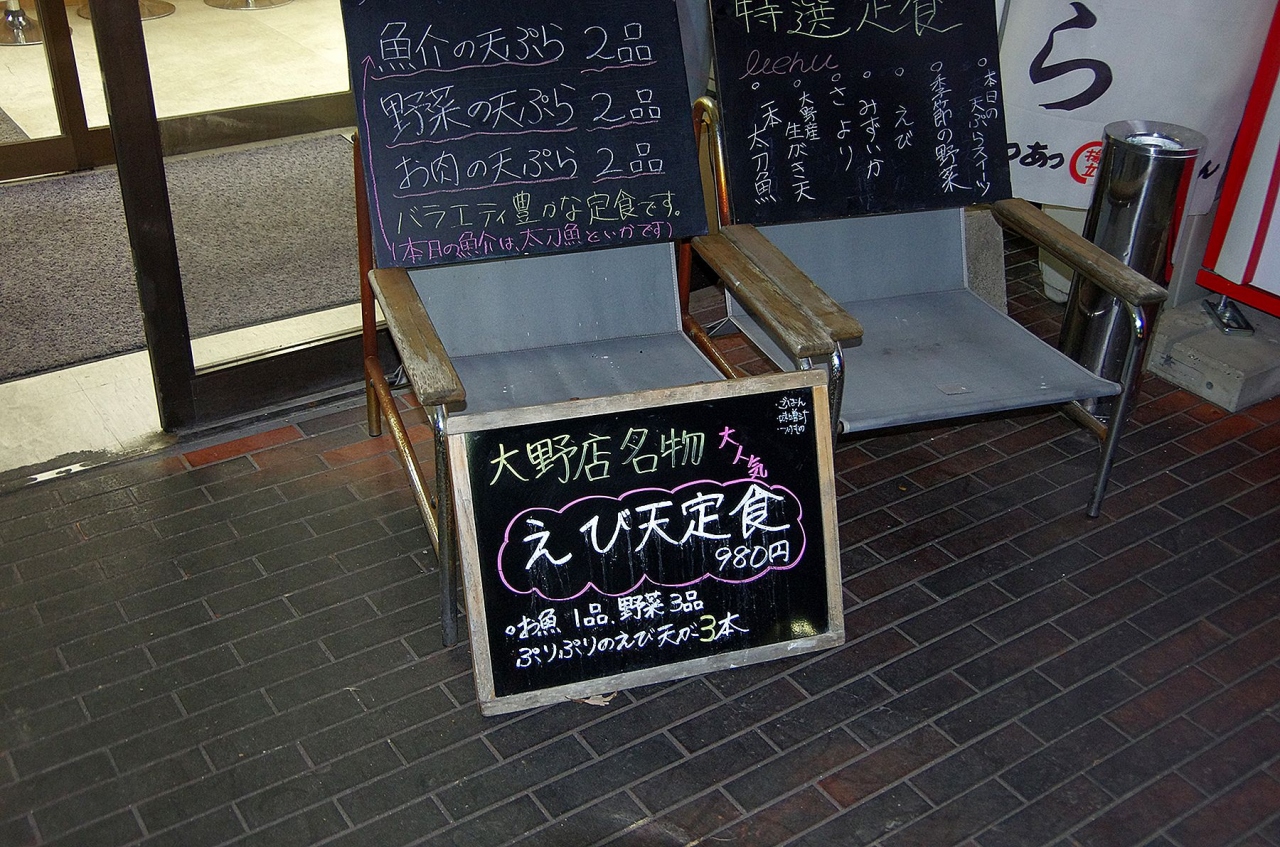 魚介の天ぷら 2品
野菜の天ぷら 2品
お肉の天ぷら 2品
バラエティ豊かな定食です。
(本日の魚介は、太刀魚といかです)
特選定食
menu
。本日の天ぷらスイーツ
。季節の野菜
。えび
。みずいか
。さより
。大野産生がき天
。一本太刀魚
ら
つあつ
ん
大野店名物
大人気
・ごはん
・味噌汁
・つけもの
えび天定食
980円
。お魚 1品、野菜3品
ぷりぷりのえび天が3本